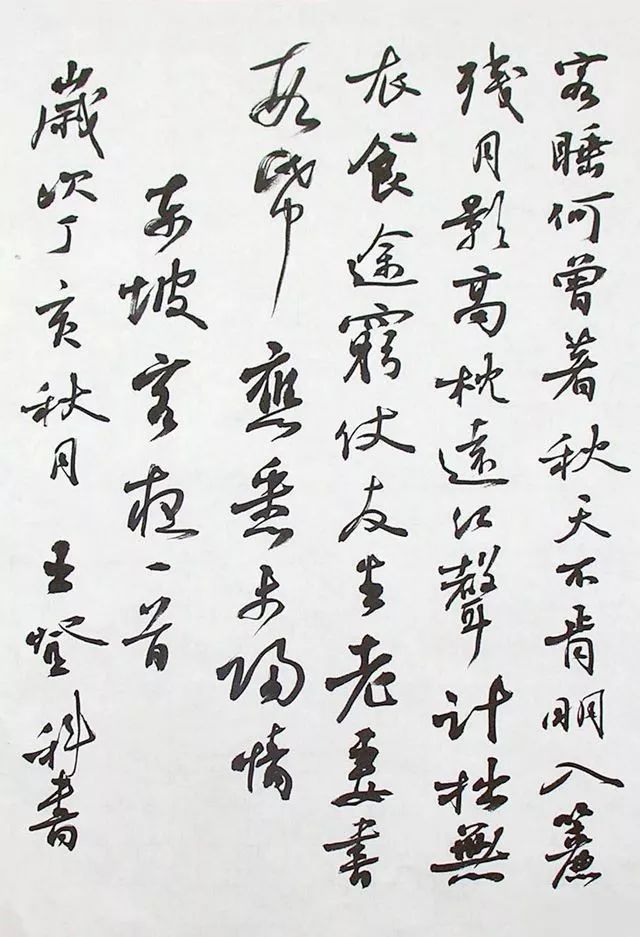 客睡何曾著秋天不肯明入簾
殘月影高枕遠江聲計拙無
衣食途窮仗友生老妻書
數帋應悉未歸情
東坡客夜一首
歲次丁亥秋月 王登科書